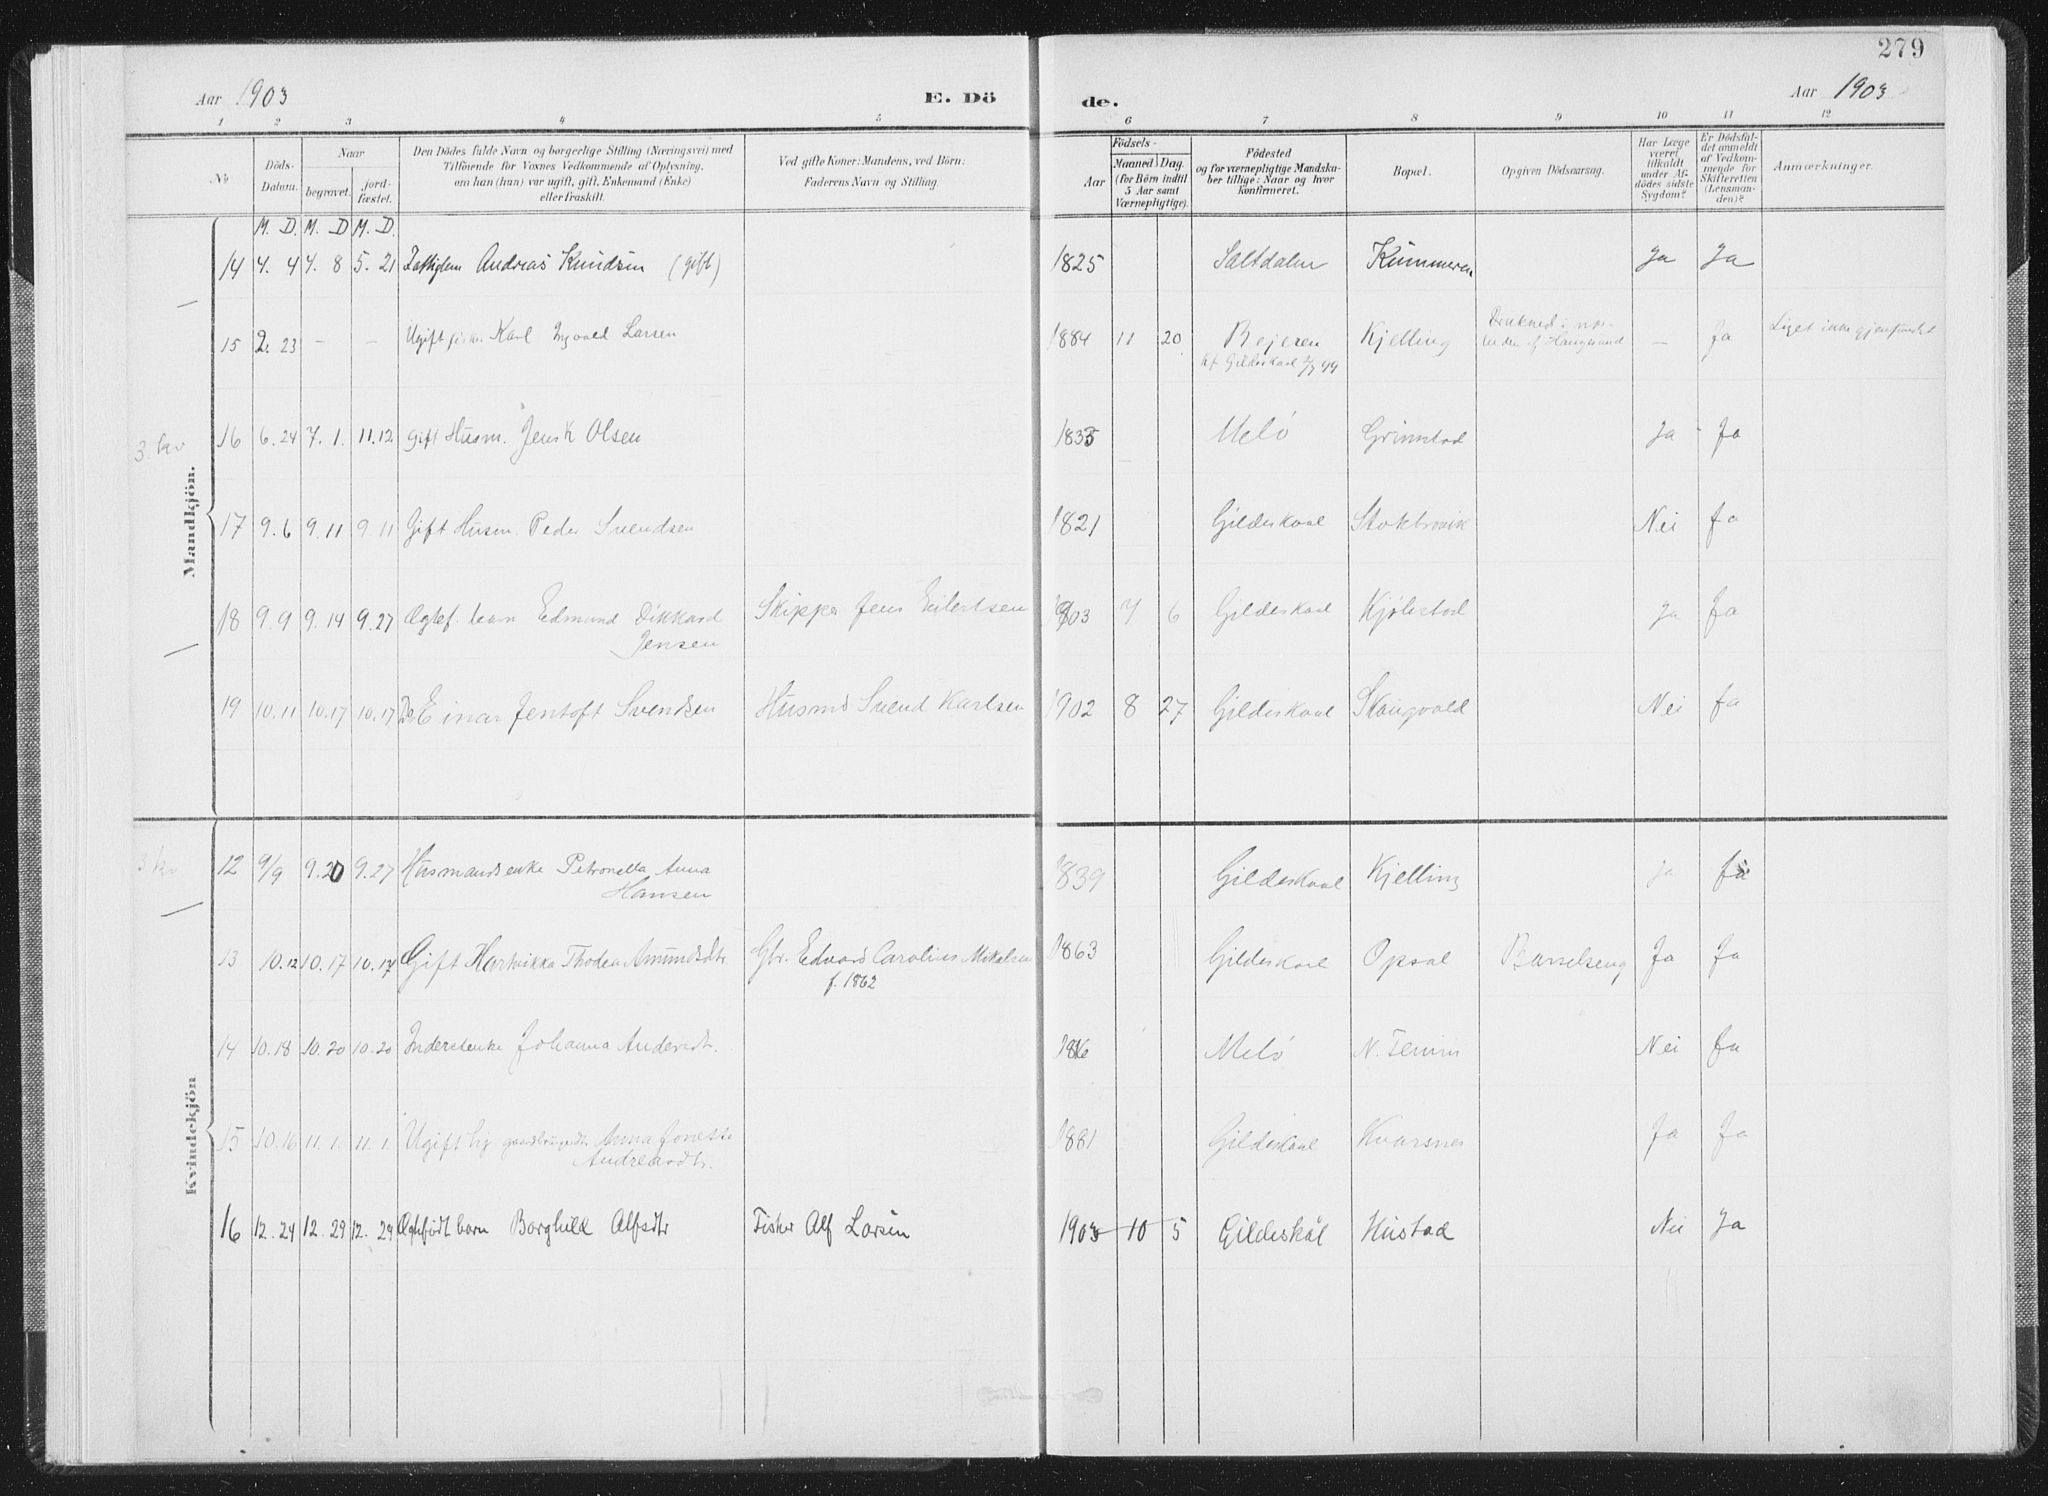 279
Aar 1903
E. Dö
de.
Aar 1903
1 2 3 4 5 6 7 8 9 10 11 12
No
Döds-
Datum.
Naar
begravet.
jord-
fæstet.
Den Dödes fulde Navn og borgerlige Stilling (Næringsvei) med
Tilföiende for Voxnes Vedkommende af Oplysning,
om han (hun) var ugift, gift, Enkemand (Enke)
eller fraskilt.
Ved gifte Koner: Mandens, ved Börn:
Faderens Navn og Stilling.
Födsels-
Aar
Maaned Dag.
(for Börn indtil
5 Aar samt
Værnepligtige).
Födested
og for værnepligtige Mandska-
ber tillige: Naar og hvor
konfirmeret.
Bopæl.
Opgiven Dödsaarsag.
Har Læge
været
tilkaldt
under Af-
dödes sidste
Sygdom?
Er Dödsfal-
det anmeldt
af Vedkom-
mende for
Skifteretten
(Lensman-
den)?
Anmærkninger.
M. D. M. D M. D.
Mandkjön.
14 7. 4 7. 8 5. 21 Andreas Knudsen (gift) 1825 Saltdalen Kummeren Ja Ja
15 2. 23 – – Ugift Karl Ingvald Larsen 1884 11 20 Bejeren Kjelling – Ja Liget ikke gjenfundet
Gildeskaal
3. kv
16 6. 24 7. 1. 11. 12 Gift Husm. Jens K Olsen 1835 Melö Grimstad Ja Ja
17 9. 6 9. 11 9. 11 Gift Husm. Peder Svendsen 1821 Gildeskaal Stokbrovik Nei Ja
18 9. 9 9. 14 9. 27 Ægtef. barn Edmund Dikkard Skipper Jens Eilertsen 1903 7 6 Gildeskaal Kjölestad Ja Ja
Jensen
19 10. 11 10. 17 10. 17 Do Einar Jentoft Svendsen Husmd Svend Karlsen 1902 8 27 Gildeskaal Skaugvold Nei Ja
Kvindekjön
3 kv
12 9/9 9. 20 9. 27 Husmandsenke Petronella Anna 1839 Gildeskaal Kjelling Ja Ja
Hansen
13 10. 12 10. 17 10. 17 Gift Hartvikka Thodea Amundsdtr Gbr. Edvard Carolius Mikalsen 1863 Gildeskaal Opsal Barselseng Ja Ja
f. 1862
14 10. 18 10. 20 10. 20 Inderstenke Johanna Andersdtr. Melö N. Nei Ja
15 10. 16 11. 1. 11. 1 Ugift Anna Jonette 1881 Gildeskaal Kvarsnes Ja Ja
Andreasdtr.
16 12. 24 12. 29 12. 29 Ægtefödt barn Borghild Alfsdtr Fisker Alf Larsen 1903 10 5 Gildeskål Hustad Nei Ja